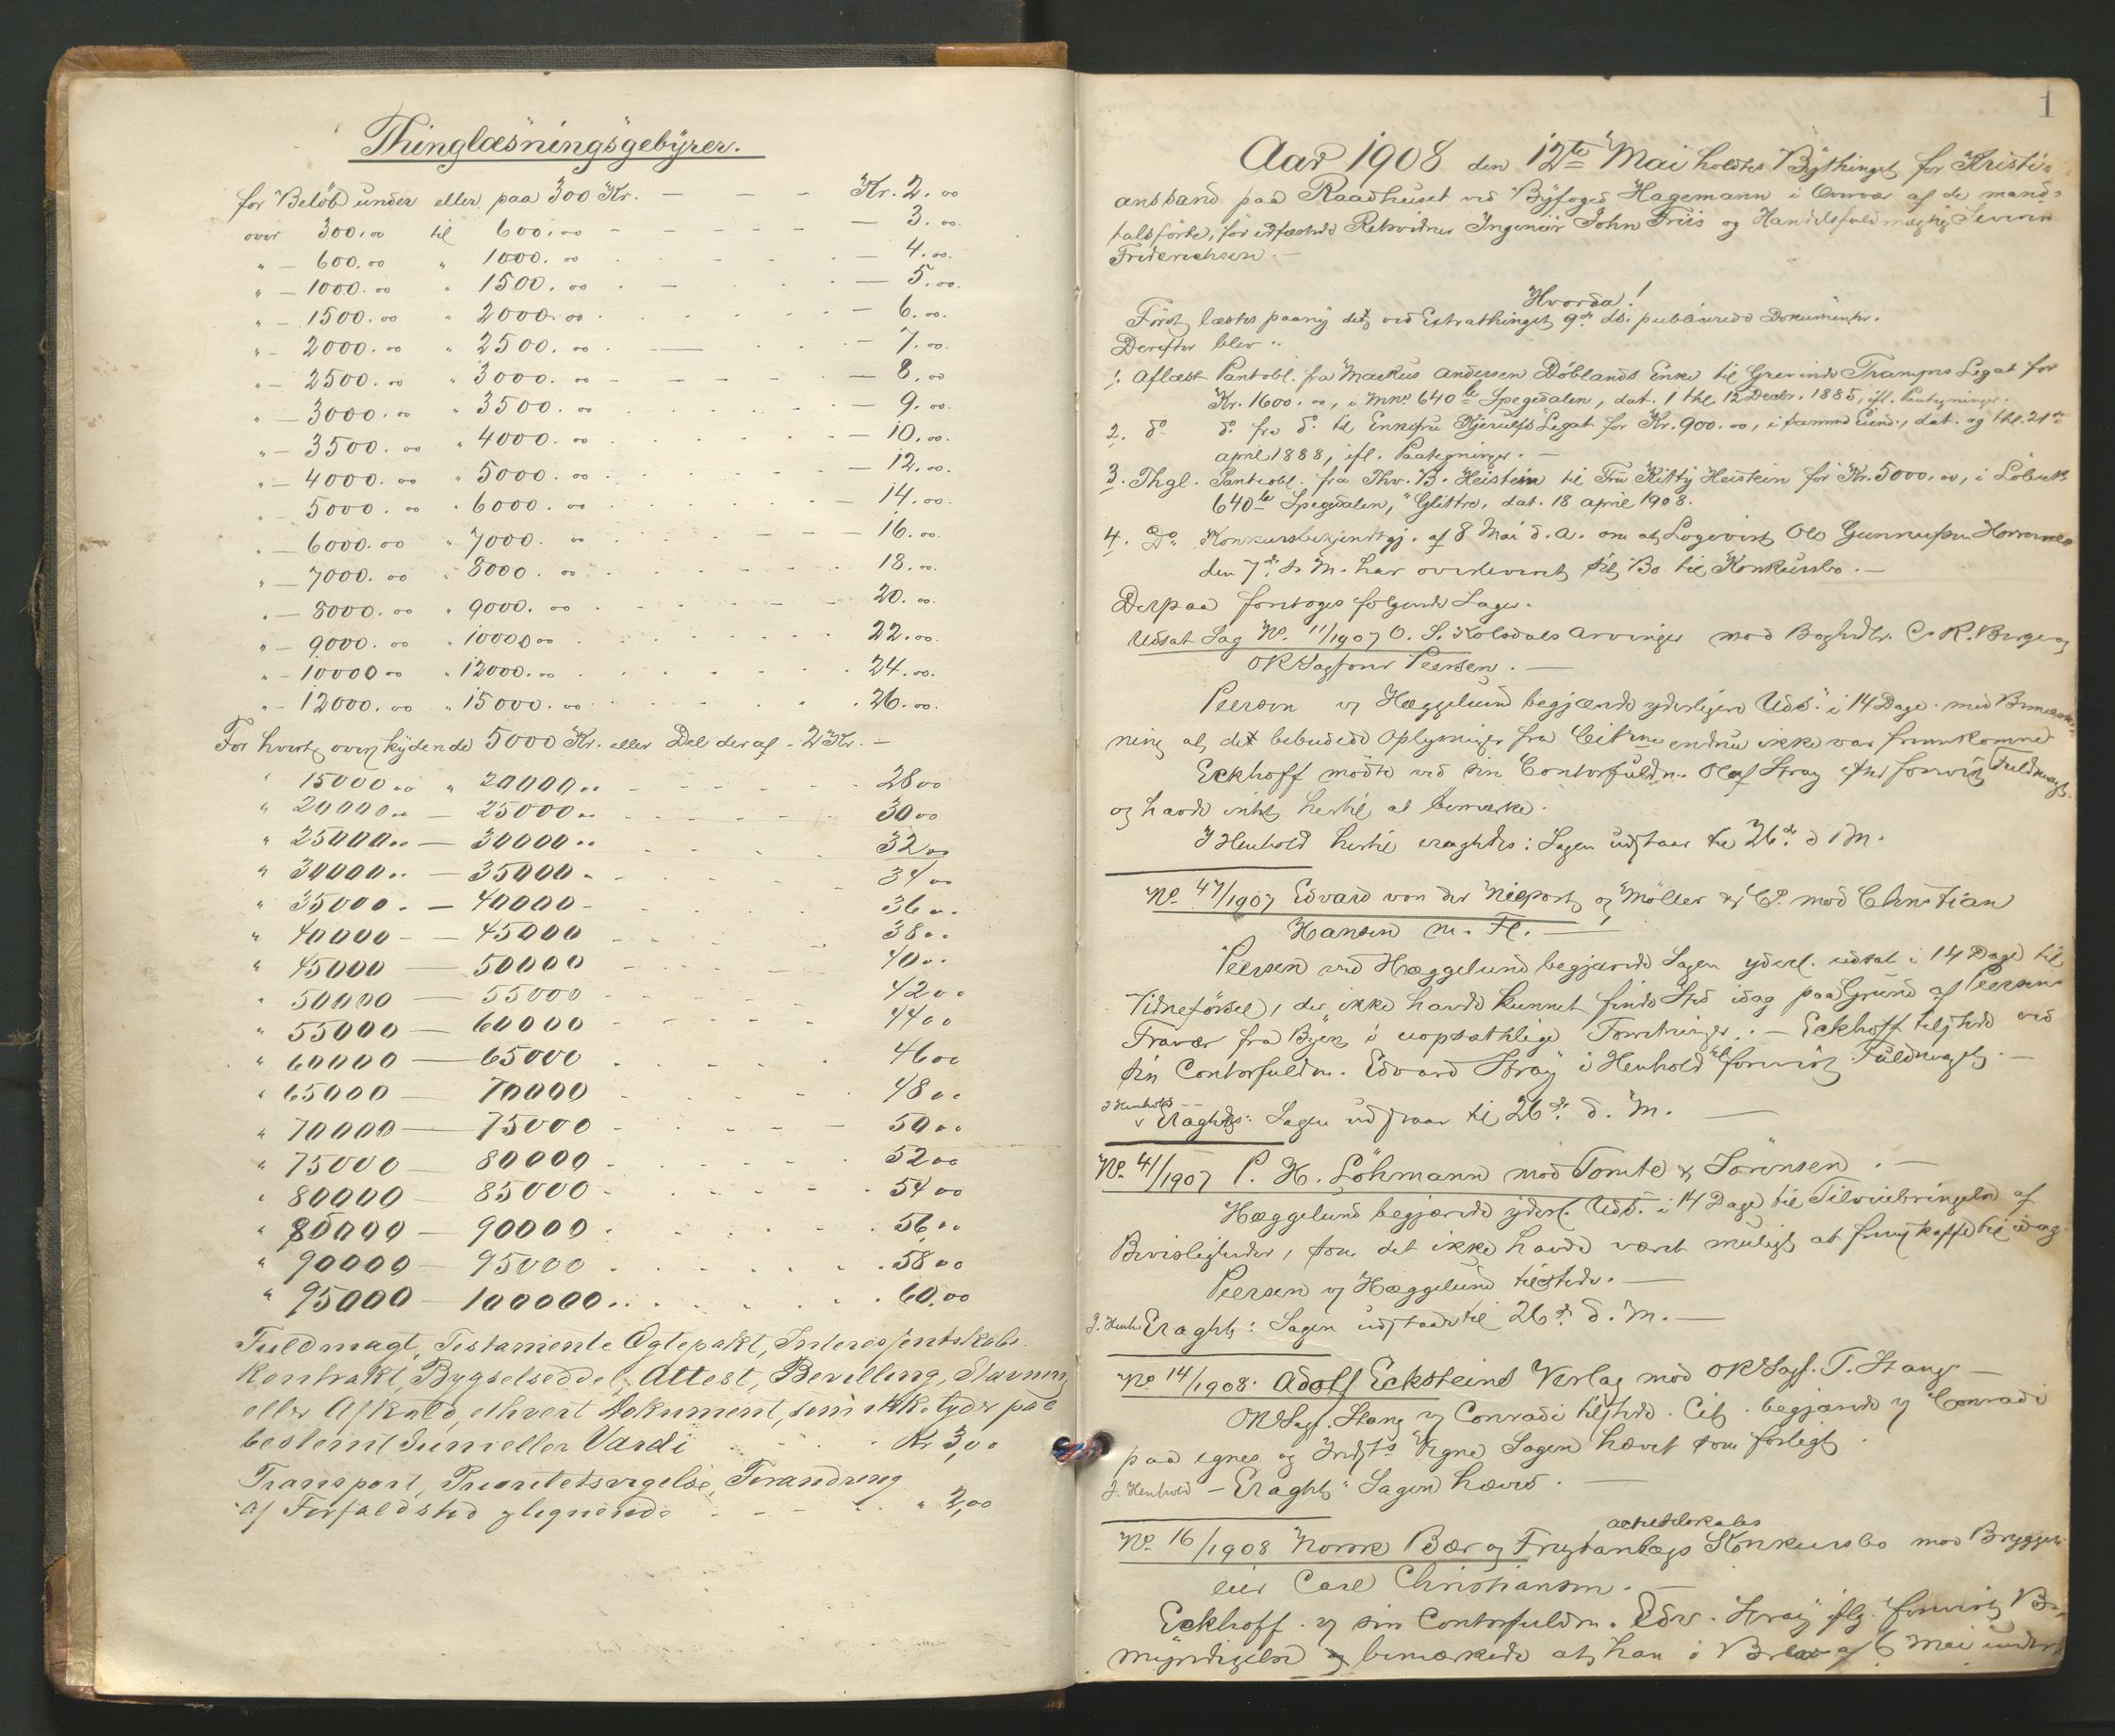 Thinglæsningsgebyrer.
for Beløb under eller paa 300 Kr. — — — Kr. 2.00
over 300.00 til 600.00 — — — — — 3.00
" — 600.00 " 1000.00 — 4.00
" — 1000.00 " 1500.00 — 5.00
" — 1500.00 " 2000.00 — 6.00
" — 2000.00 " 2500.00 — 7.00
" — 2500.00 " 3000.00 — 8.00
" — 3000.00 " 3500.00 — 9.00
" — 3500.00 " 4000.00 — 10.00
" — 4000.00 " 5000.00 — 12.00
" — 5000.00 " 6000.00 — 14.00
" — 6000.00 " 7000.00 — 16.00
" — 7000.00 " 8000.00 — 18.00
" — 8000.00 " 9000.00 — 20.00
" — 9000.00 " 10000.00 22.00
" — 10000.00 " 12000.00 24.00
" — 12000.00 " 15000.00 26.00
For hvert overskydende 5000 Kr. eller Del deraf - 2 Kr. —
" 15000.00 " 20000.. 28 00
" 20000.. — 25000.. 30 00
" 25000.. — 30000.. 32 00
" 30000.. — 35000. 34 00
" 35000. — 40000 - 36 00
" 40000 - — 45000 38 00
" 45000 — 50000 40 00
" 50000 — 55000 42 00
" 55000 — 60000 44 00
" 60000 — 65000 46 00
" 65000 — 70000 48 00
" 70000 — 75000 50 00
" 75000 — 80000 52 00
" 80000 — 85000 54 00
" 85000 — 90000 56 00
" 90000 — 95000 58 00
" 95000 — 100000.. 60.00
Fuldmagt, Testamente Ægtepakt, Interessentskabs-
kontrakt, Bygselseddel, Attest, Bevilling, Stævning
eller Afkald, ethvert Dokument, som ikke lyder paa
bestemt Sum eller Værdi Kr 3,00
Transport, Prioritetsvigelse, Forandring
af Forfaldstid og lignende " 2,00
1
Aar 1908 den 12te Mai holdtes Bythinget for Kristi-
anssand paa Raadhuset ved Byfoged Hagemann i Overvær af de mand-
talsførte, før edfæstede Retsvidner Ingeniør John Friis og Handelsfuldmægtig Severin
Frederichsen. —
Hvorda!
Først læstes paany det ved Extrathinget 9de ds. publicerede Dokumenter.
Derefter blev:
1. Aflæst Pantobl. fra Markus Andersen Døblands Enke til Grevinde Trampes Legat for
Kr. 1600.00, i Mno 640 Spegedalen, dat. 1 thl. 12 Decbr. 1885, ifl. Paategninger.
2. do do fra do til Enkefru Kjerulfs Legat for Kr. 900.00, i samme Eiend., dat. og thl. 21de
april 1888, ifl. Paategninger. —
3. Thgl. Pantobl. fra Thv. B. Heistein til Fru Kitty Heistein for Kr. 5000.00, i Løbenr.
640 Spegedalen, "Glittre, dat. 18 april 1908.
4. Do Konkursbekjendtgj. af 8 Mai d. A. om at Logevirt Ole Gunnufsen
den 7de d. M. har overleveret sit Bo til Konkursbo. —
Derpaa foretoges følgende Sager.
Udsat Sag No. 11/1907 O. S. Kolsdals Arvinger mod Boghdlr. C. R. Berge og
ORSagfører Peersen. —
Peersen og Hæggelund begjærede yderligere Uds. i 14 Dage med Bemærk-
ning at det bebudede Oplysninger fra Citne endnu ikke var fremkomne
Eckhoff mødte ved sin Contorfuldm. Olaf Stray efter forevist Fuldmagt
og havde intet hertil at bemærke.
I Henhold hertil eragtedes: Sagen udstaar til 26de d. M.
No. 47/1907 Edvard von der Nieport og Møller & Co. mod Christian
Hansen m. Fl. —
Peersen ved Hæggelund begjærede Sagen yderl. udsat i 14 Dage til
Vidneførsel, der ikke havde kunnet finde Sted idag paa Grund af Peersens
Fravær fra Byen i uopsættelige Forretninger. — Eckhoff tilstede ved
sin Contorfuldm. Edvard Stray i Henhold til forevist Fuldmagt. —
I Henhold
v Eragtes: Sagen udstaar til 26de d. M. —
No. 41/1907 P. H. Løhmann mod Tomte & Sørensen. —
Hæggelund begjærede yderl. Uds. i 14 Dage til Tilveiebringelse af
Bevisligheder, som det ikke havde været muligt at fremskaffe til idag.
Peersen og Hæggelund tilstede. —
I. Henh. Eragtet: Sagen udstaar til 26de d. M. —
No. 14/1908. Adolf Ecksteins Verlag mod ORSagf. T. Stang. —
ORSagf. Stang og Conradi tilstede. Cit. begjærede og Conradi
paa egne og Indst.s Vegne Sagen hævet som forligt.
I. Henhold — Eragtet: Sagen hæves. —
No. 16/1908 Norsk Bær og Frugtanlægs
actieselskabs
Konkursbo mod Bryggeri-
eier Carl Christiansen. —
Eckhoff. og sin Contorfuldm. Edv. Stray iflg. forevist Be-
myndigelse og bemærkede at han i Brev af 6 Mai under